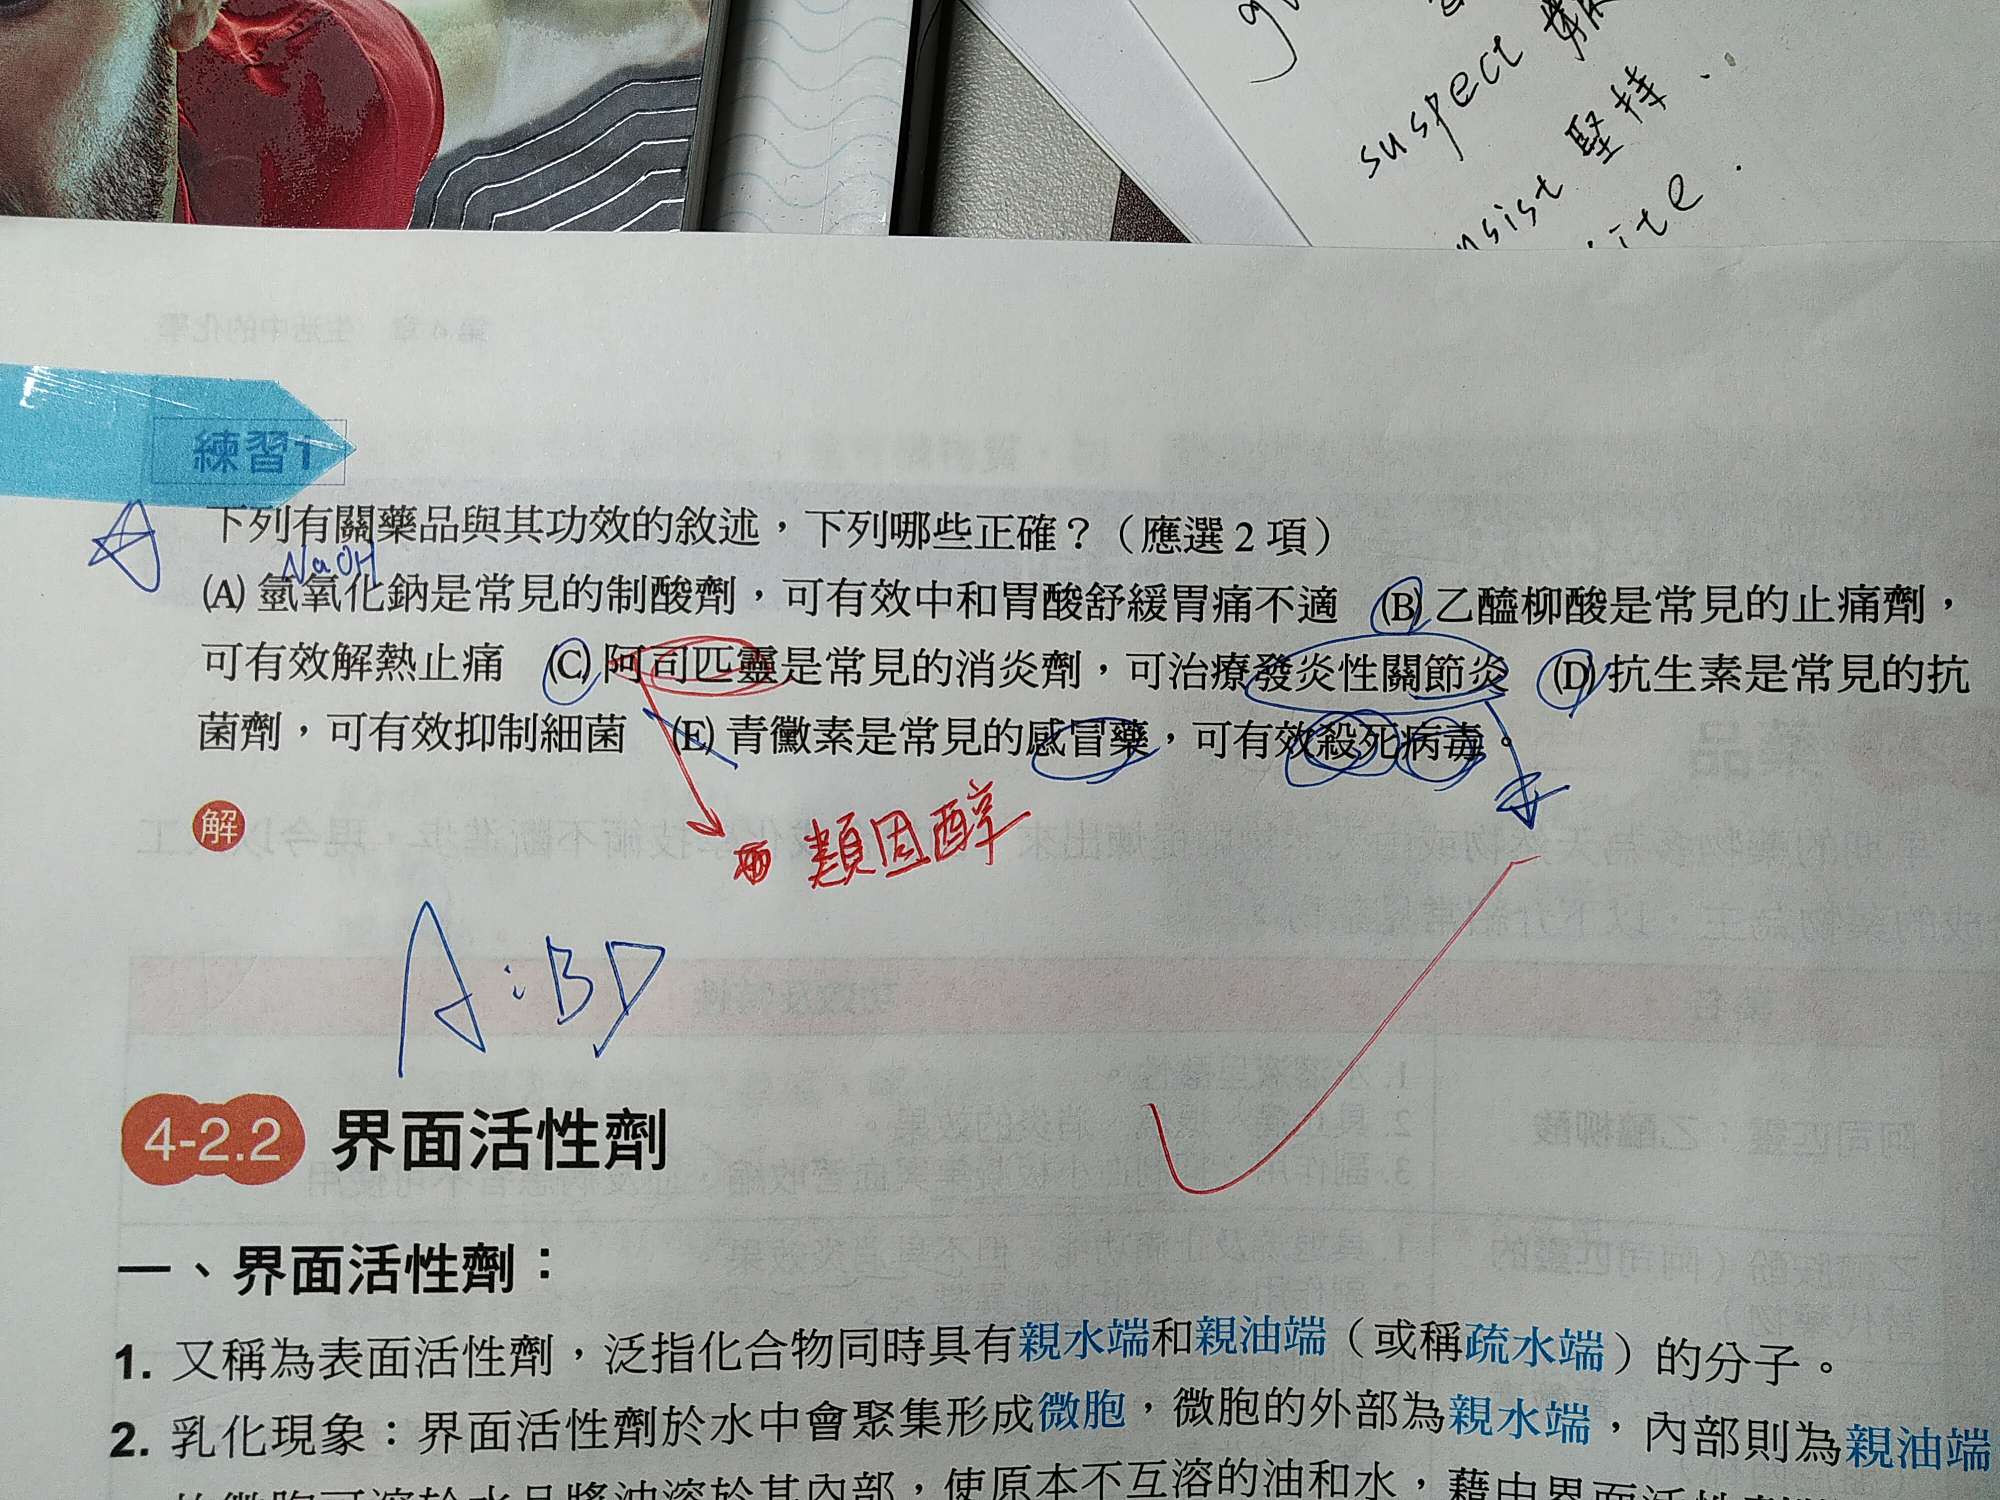 suspect
堅持
練習1
下列有關藥品與其功效的敘述，下列哪些正確？（應選2項）
NaOH
(A) 氫氧化鈉是常見的制酸劑，可有效中和胃酸舒緩胃痛不適　(B) 乙醯柳酸是常見的止痛劑，
可有效解熱止痛　(C) 阿司匹靈是常見的消炎劑，可治療發炎性關節炎　(D) 抗生素是常見的抗
菌劑，可有效抑制細菌　(E) 青黴素是常見的感冒藥，可有效殺死病毒。
解
類固醇
A：BD
4-2.2 界面活性劑
一、界面活性劑：
1. 又稱為表面活性劑，泛指化合物同時具有親水端和親油端（或稱疏水端）的分子。
2. 乳化現象：界面活性劑於水中會聚集形成微胞，微胞的外部為親水端，內部則為親油端
使原本不互溶的油和水，藉由界面活性